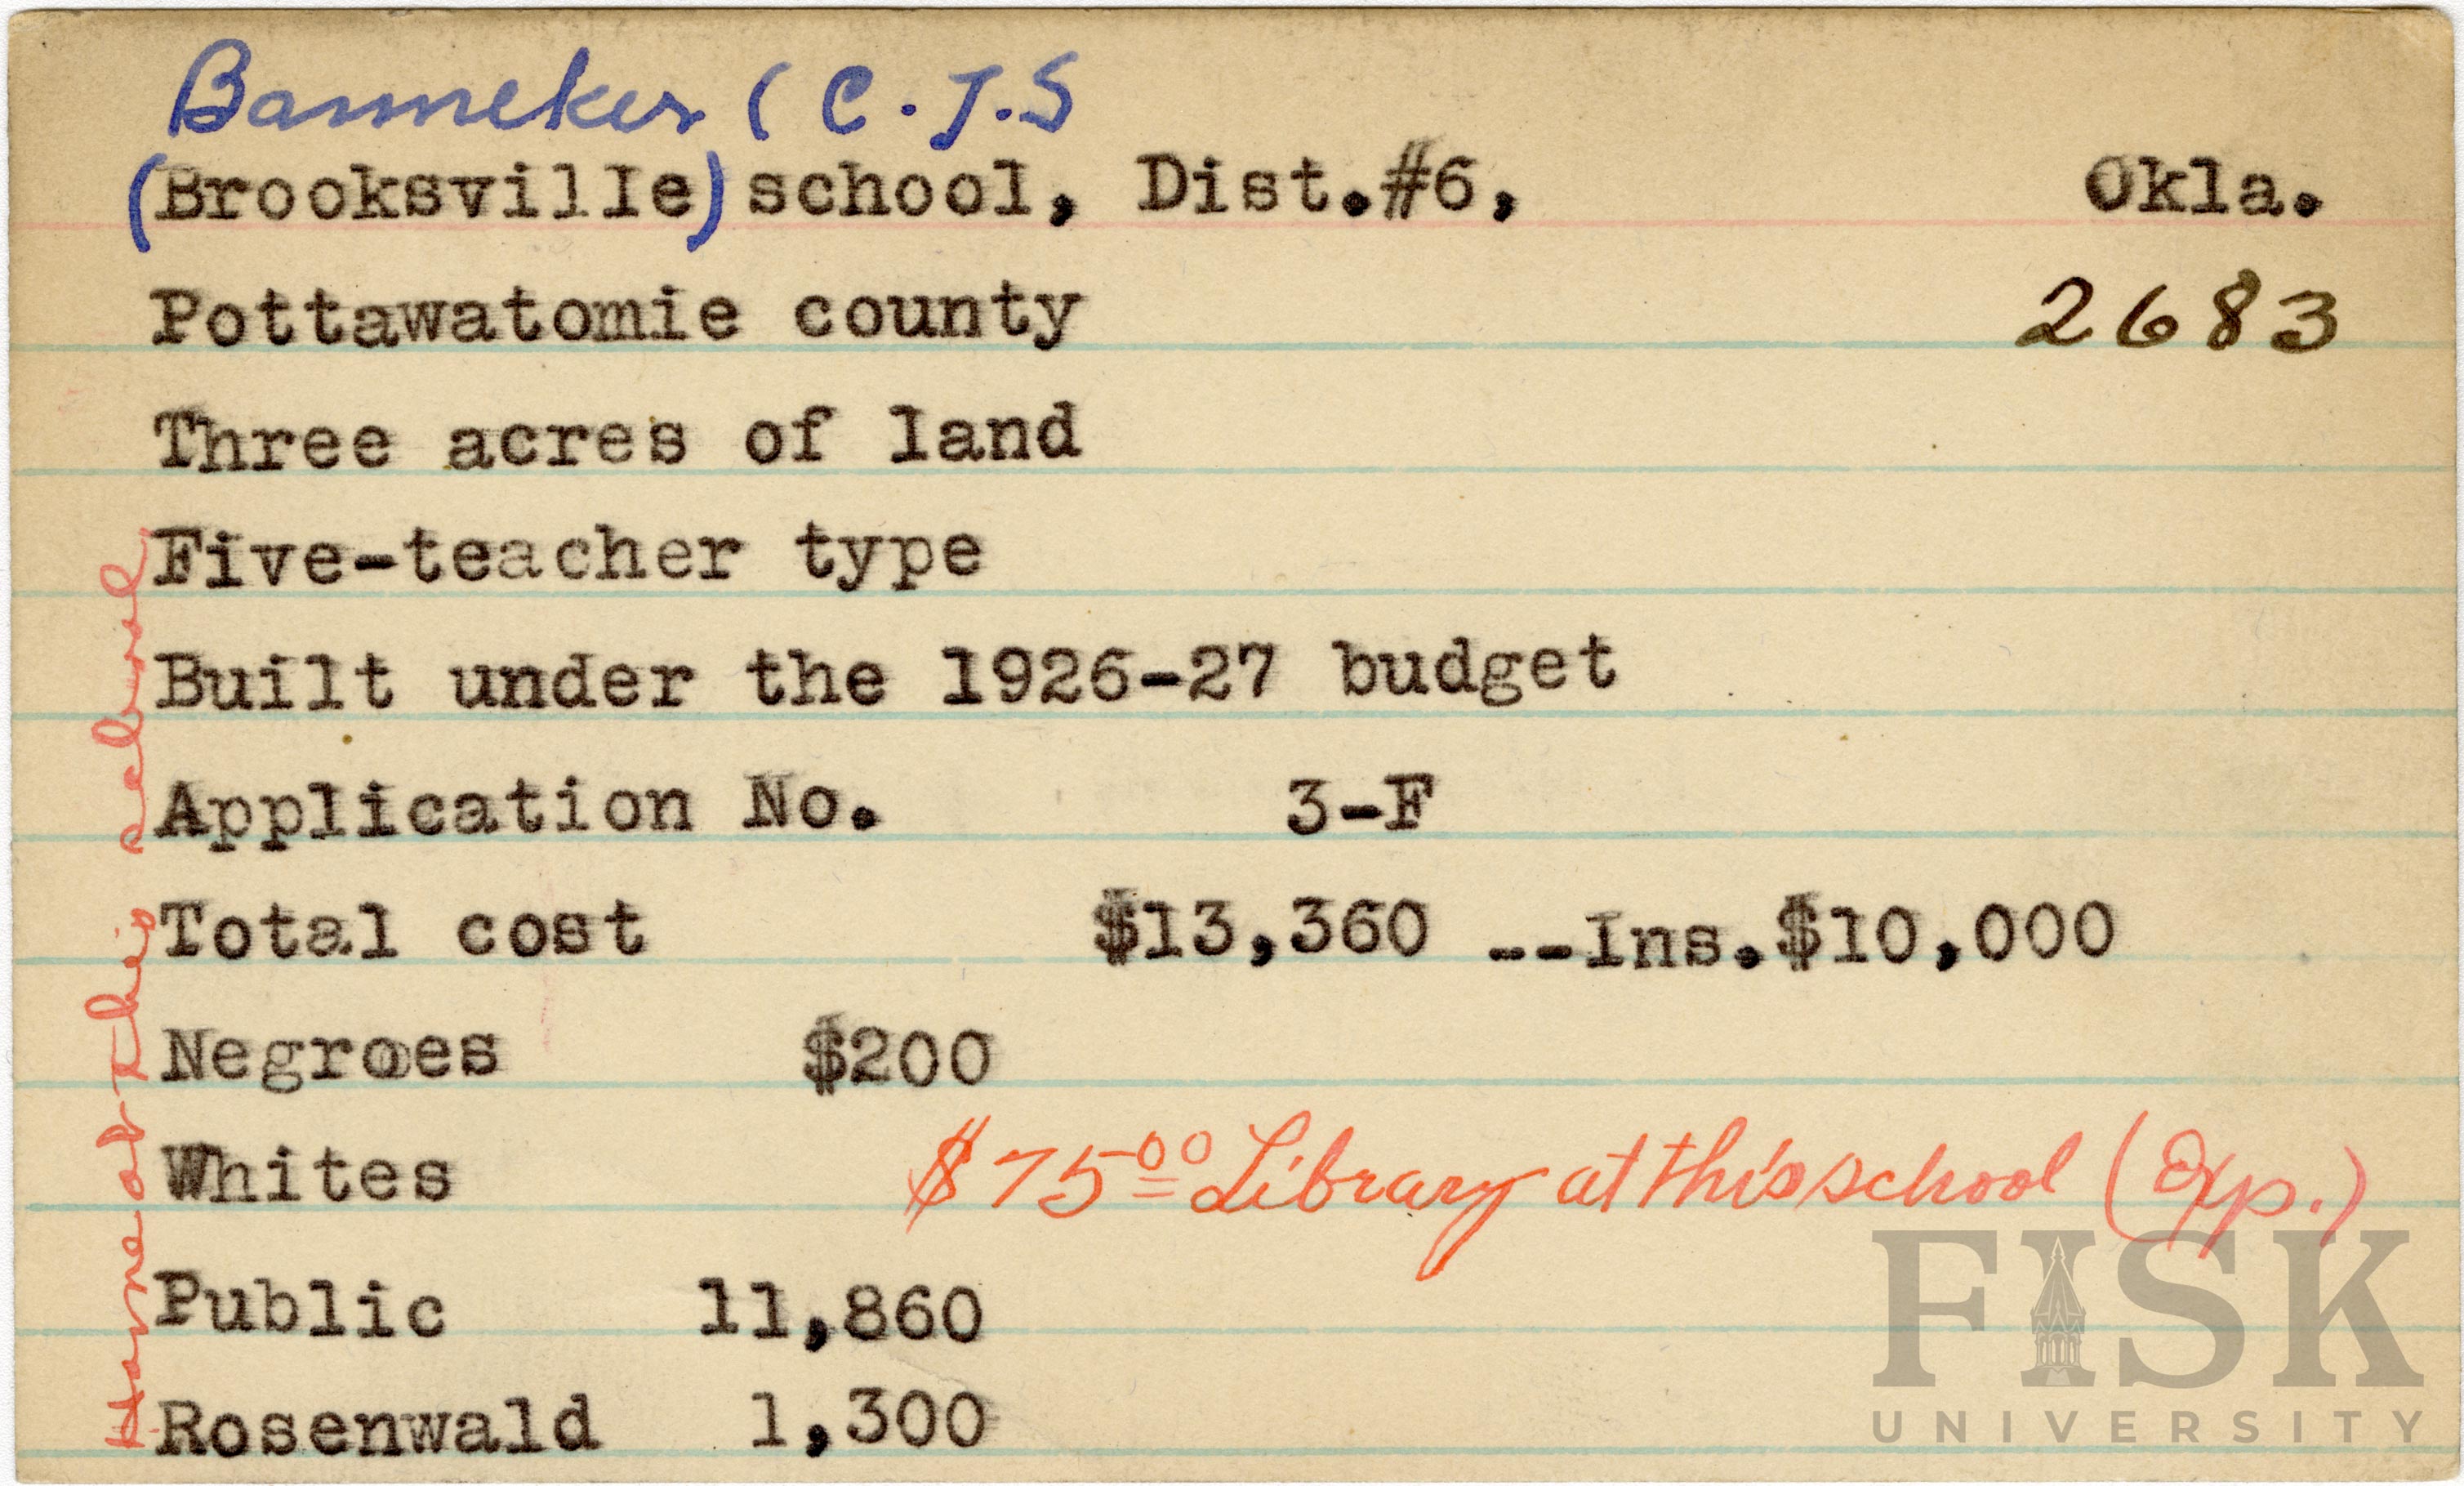 Banneker ( C. T. S
(Brooksville) school, Dist.#6, Okla.
Pottawatomie county 2683
Three acres of land
Five-teacher type
Built under the 1926-27 budget
Application No. 3-F
Total cost $13,360 --Ins.$10,000
Negroes $200
Whites $75.00 Library at this school (Exp.)
Public 11,860
Rosenwald 1,300
Home at this school
FISK
UNIVERSITY